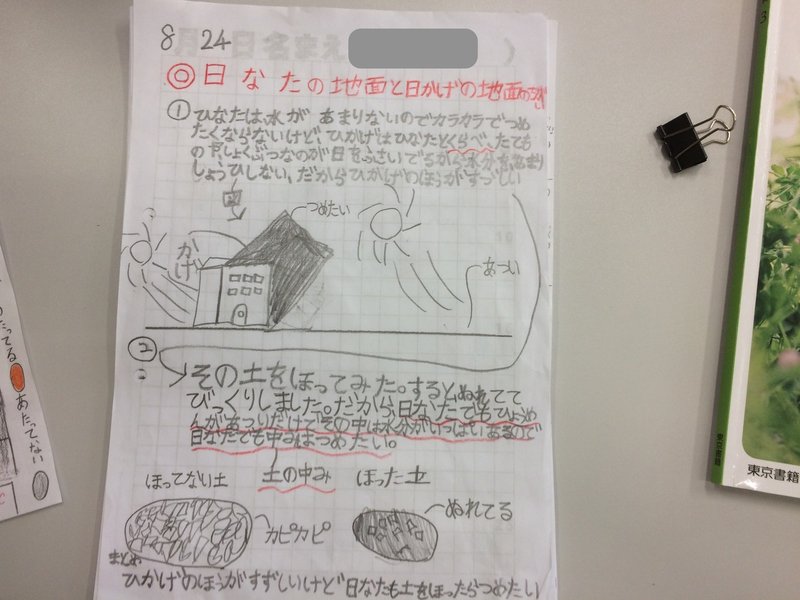 8月24日名まえ
◎日なたの地面と日かげの地面のちがい
① ひなたは、水が あまりないのでカラカラでつめ
たくならないけど、ひかげはひなたとくらべ、たても
の下、しょくぶつなのが日をふさいでるから水分をあまり
しょうひしない、だからひかげのほうがすずしい
図
つめたい
かげ
あつい
②
その土をほってみた。するとぬれてて
びっくりしました。だから、日なたでもひょうめ
んがあついだけで、その中は水分がいっぱいあるので
日なたでも中みはつめたい。
ほってない土
土の中み
ほった土
カピカピ
ぬれてる
まとめ
ひかげのほうがすずしいけど日なたも土をほったらつめたい
あたってる
あたってない
東京書籍
東京書籍
3